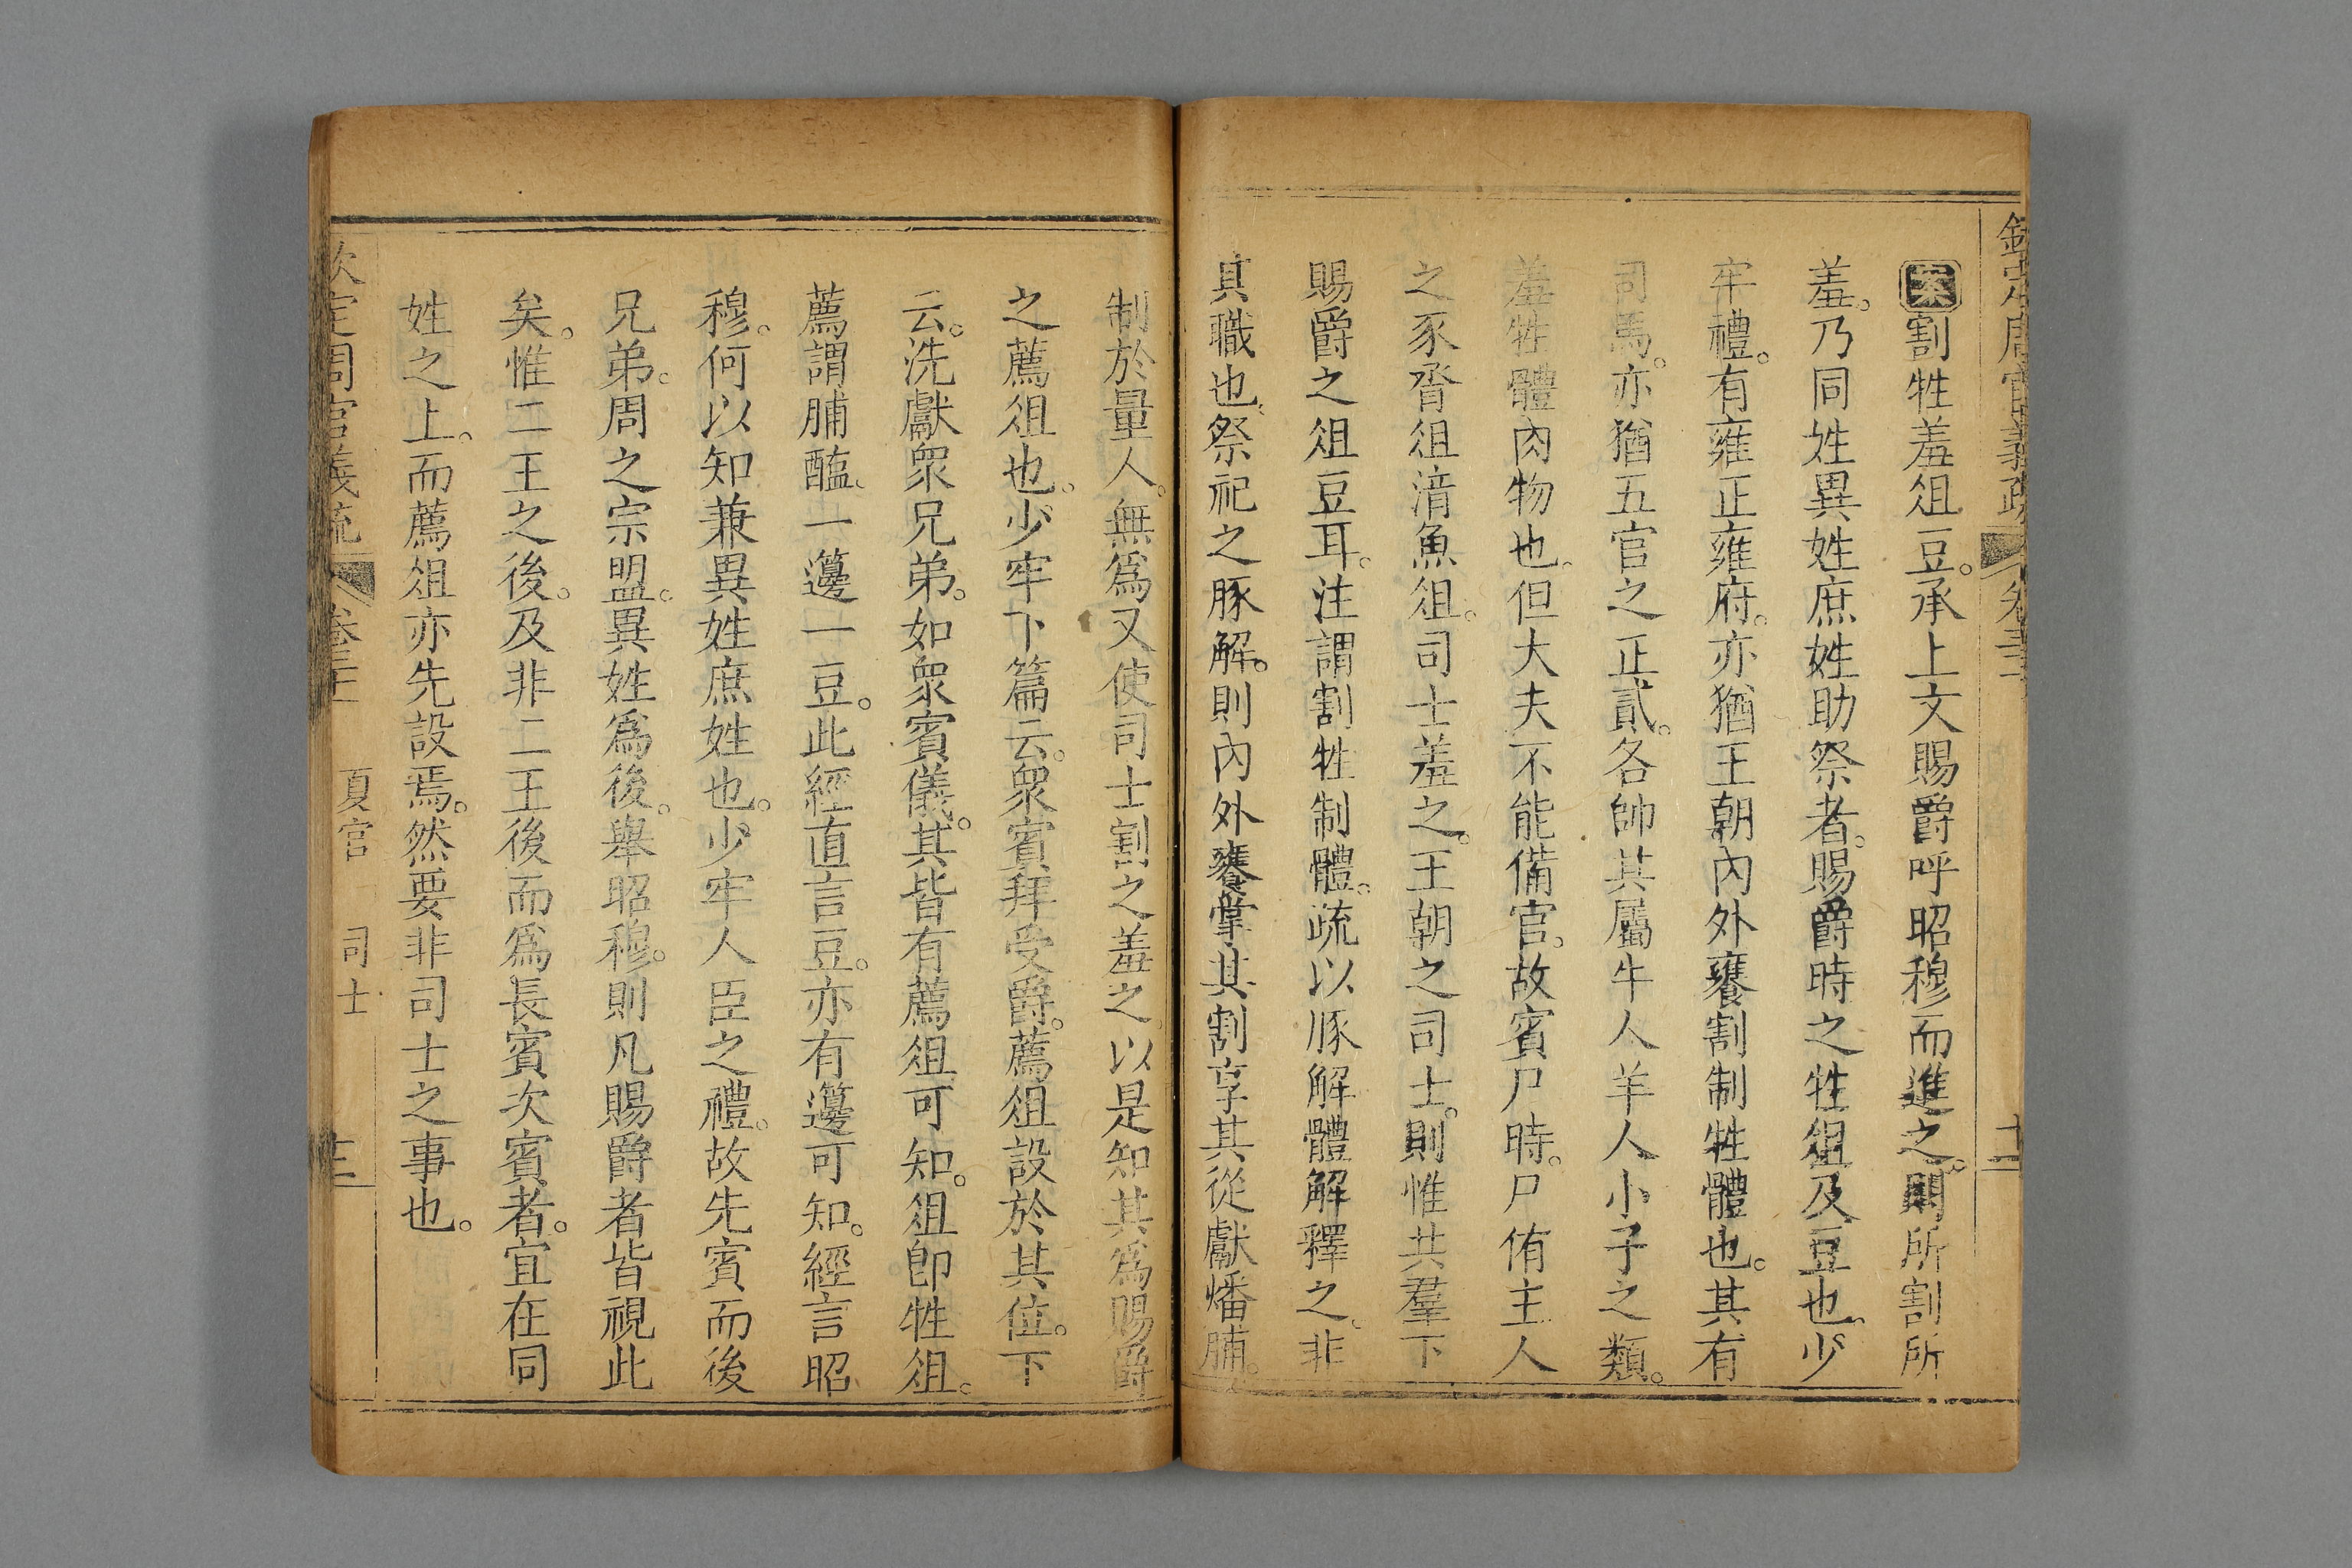 欽定周官義疏 卷三十 十二
案割牲羞俎豆。承上文賜爵呼昭穆而進之。則所割所
羞。乃同姓異姓庶姓助祭者。賜爵時之牲俎及豆也。少
牢禮。有雍正雍府。亦猶王朝內外饔割制牲體也。其有
司馬。亦猶五官之正貳。各帥其屬牛人羊人小子之類。
羞牲體肉物也。但大夫不能備官。故賓尸時。尸侑主人
之豕脀俎湇魚俎。司士羞之。王朝之司士。則惟共羣下
賜爵之俎豆耳。注謂割牲制體。疏以豚解體解釋之。非
其職也。祭祀之豚解。則內外饔掌其割亨其從獻燔脯。
制於量人。無爲又使司士割之羞之。以是知其爲賜爵
之薦俎也。少牢下篇云。衆賓拜受爵。薦俎設於其位。下
云。洗獻衆兄弟。如衆賓儀。其皆有薦俎可知。俎卽牲俎。
薦謂脯醢。一籩一豆。此經直言豆。亦有籩可知。經言昭
穆。何以知兼異姓庶姓也。少牢人臣之禮。故先賓而後
兄弟。周之宗盟。異姓爲後。舉昭穆。則凡賜爵者皆視此
矣。惟二王之後。及非二王後而爲長賓次賓者。宜在同
姓之上。而薦俎亦先設焉。然要非司士之事也。
欽定周官義疏 卷三十 夏官 司士 十二